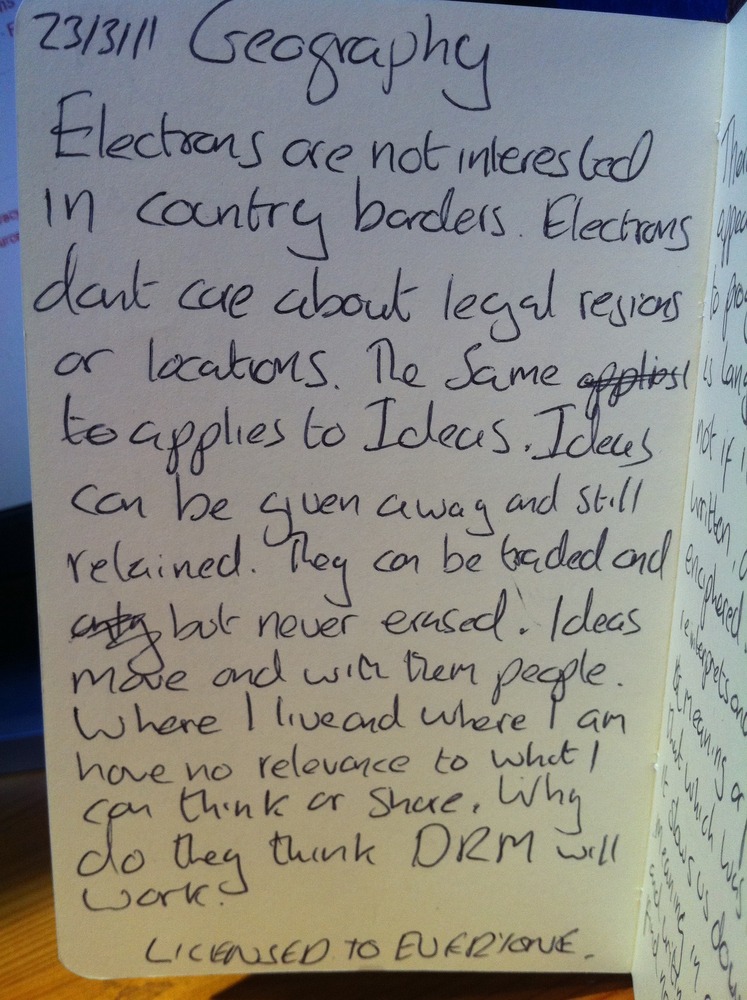 23/3/11 Geography
Electrons are not interested
in country borders. Electrons
dont care about legal regions
or locations. The same applies
to applies to Ideas. Ideas
can be given away and still
retained. They can be traded and
but never erased. Ideas
move and with them people.
Where I live and where I am
have no relevance to what I
can think or share. Why
do they think DRM will
work?
LICENSED TO EVERYONE.
to
is
not if
written,
enciphered
reinterprets and
meaning or
That which was
it slows us down
meaning in